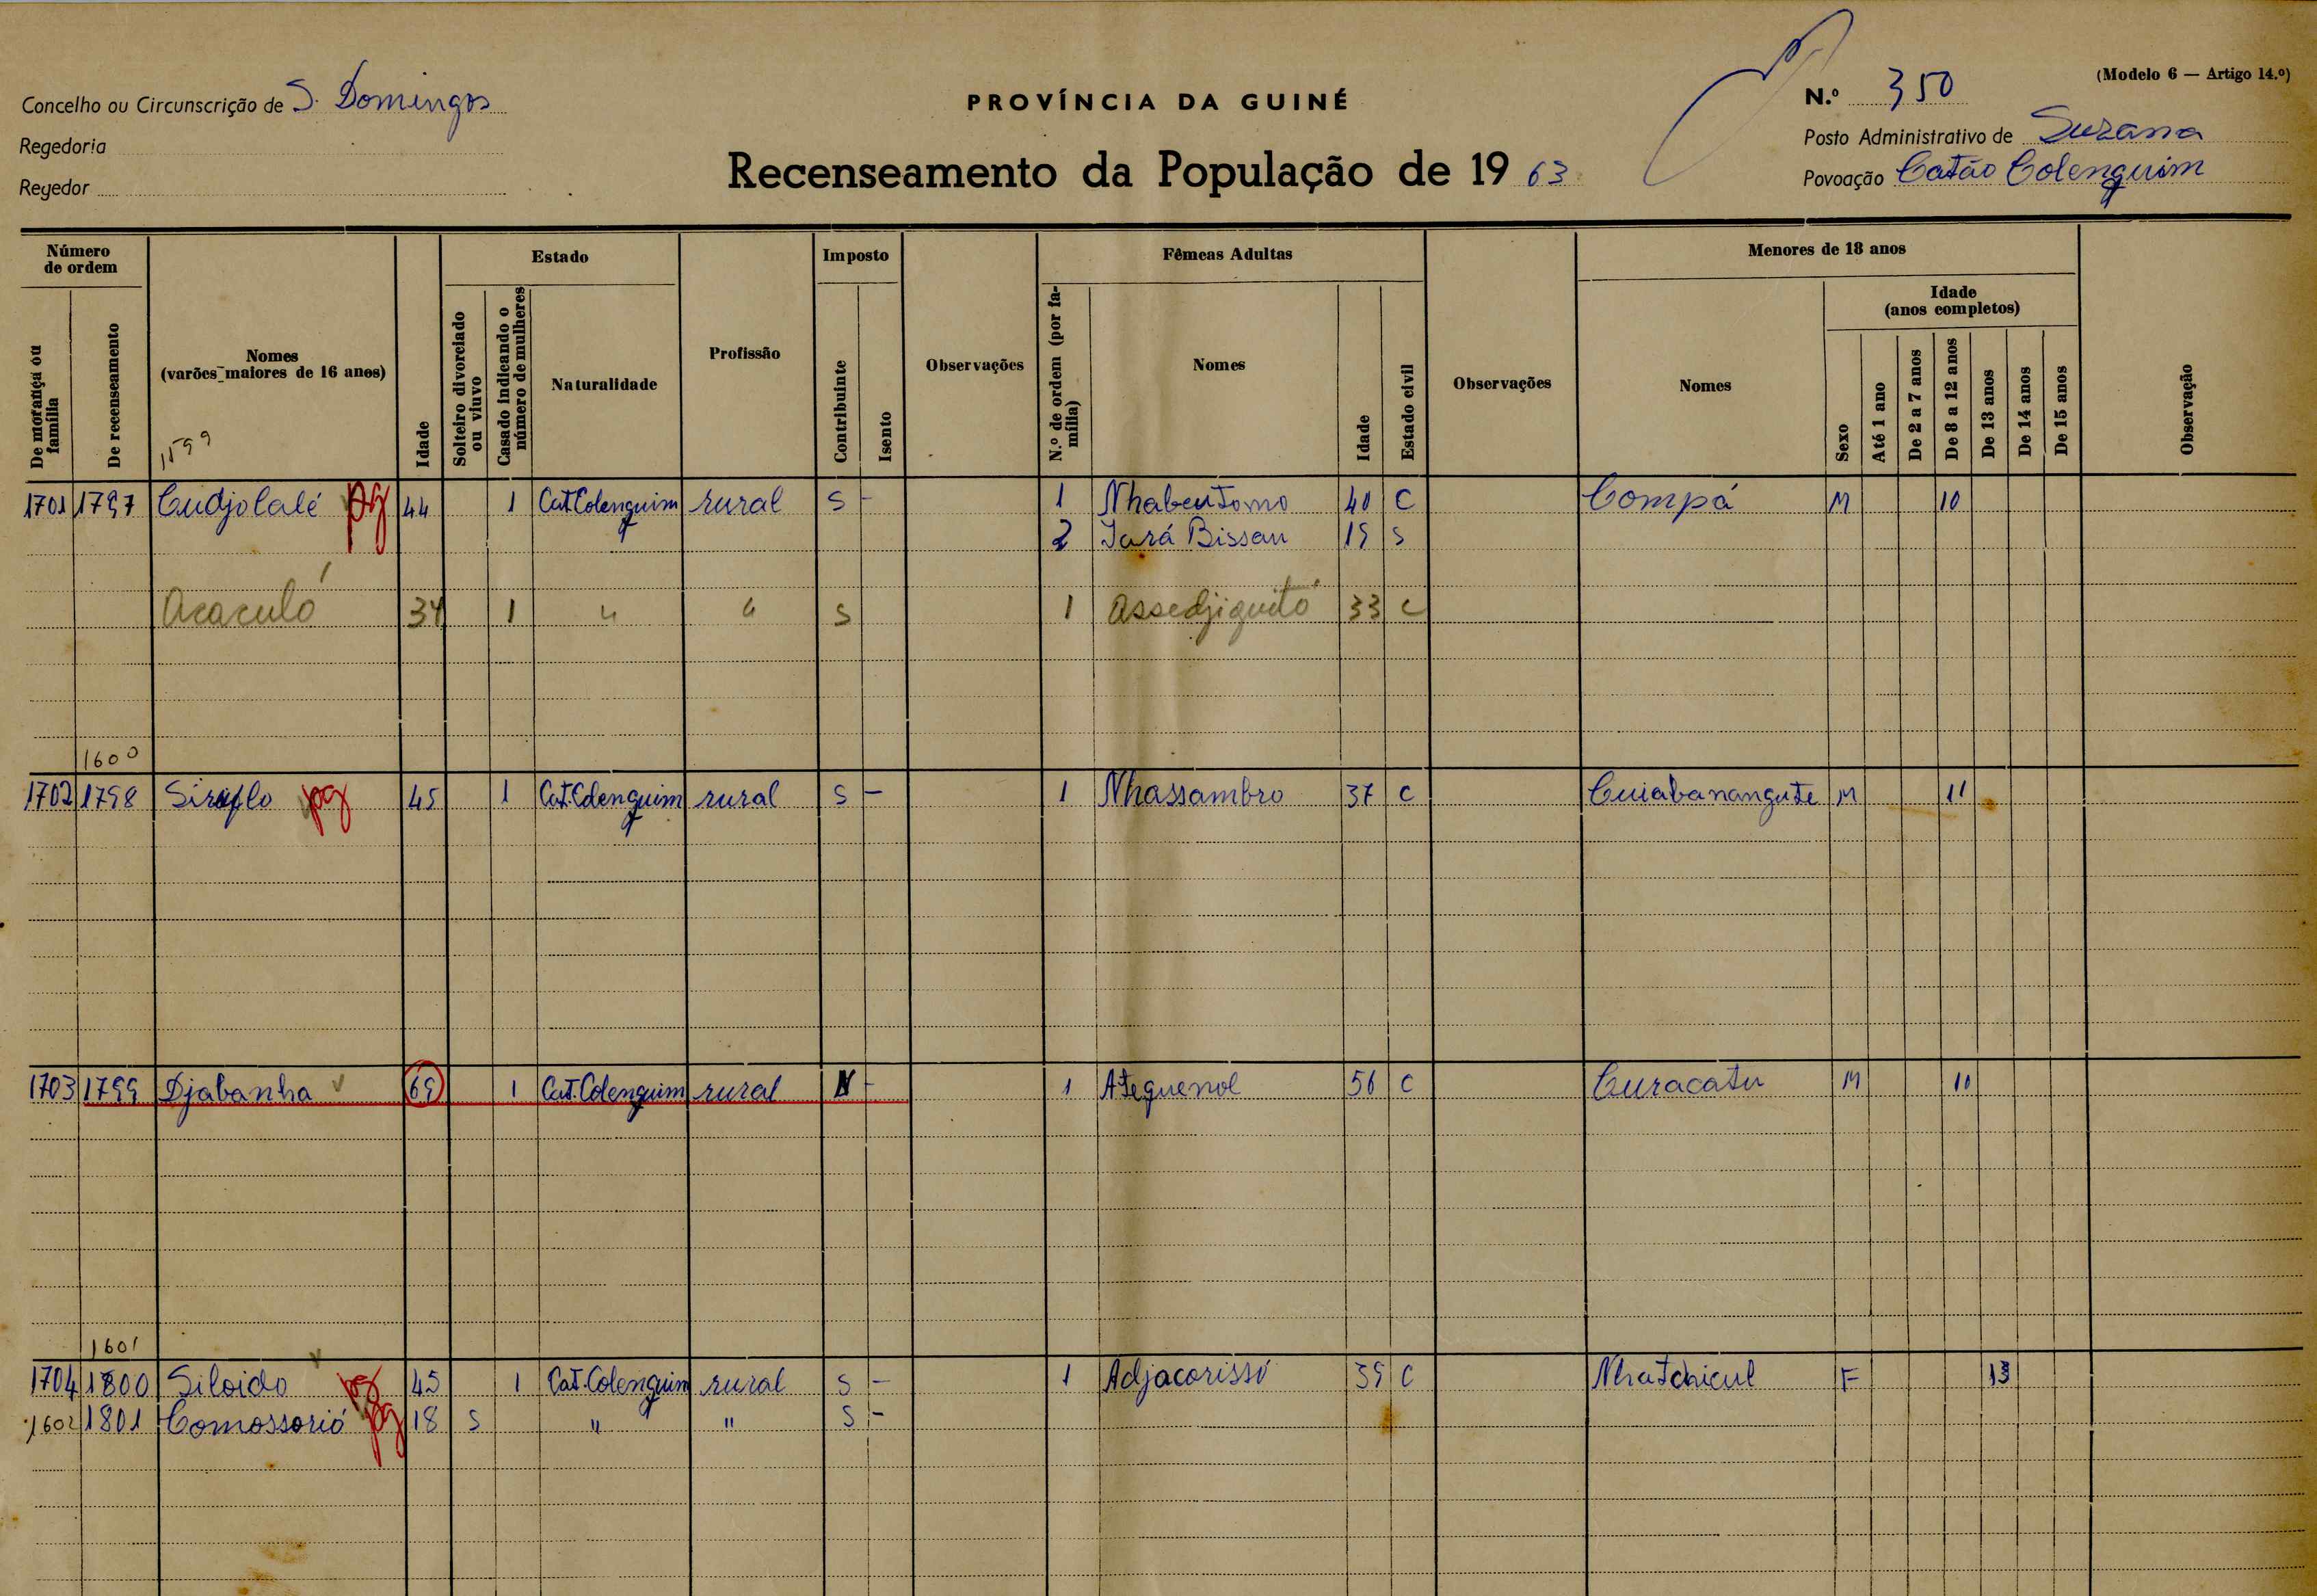 (Modelo 6 — Artigo 14.º)
Concelho ou Circunscrição de S. Domingos
PROVÍNCIA DA GUINÉ
N.º 350
Regedoria
Posto Administrativo de Suzana
Regedor
Recenseamento da População de 19 63
Povoação Catão Colenguim
Número de ordem
De morança ou família
De recenseamento
Nomes
(varões maiores de 16 anos)
1599
Idade
Estado
Solteiro divorciado ou viuvo
Casado indicando o número de mulheres
Naturalidade
Profissão
Imposto
Contribuinte
Isento
Observações
Fêmeas Adultas
N.º de ordem (por família)
Nomes
Idade
Estado civil
Observações
Menores de 18 anos
Nomes
Sexo
Idade
(anos completos)
Até 1 ano
De 2 a 7 anos
De 8 a 12 anos
De 13 anos
De 14 anos
De 15 anos
Observação
1701 1797 Cudjolalé pg 44 1 Cat.Colenguim rural S - 1 Nhabentomo 40 C Compá M 10
2 Jará Bissau 19 S
Acaculó 34 1 " " S 1 Assedjiguitó 33 C
1600
1702 1798 Siraflo pg 45 1 Cat.Colenguim rural S - 1 Nhassambro 37 C Cuiabanangute M 11
1703 1799 Djabanha 69 1 Cat.Colenguim rural N - 1 Ateguenol 56 C Curacatu M 10
1601
1704 1800 Siloido pg 45 1 Cat.Colenguim rural S - 1 Adjacorissó 39 C Nhatchicul F 13
1602 1801 Comossorió pg 18 S " " S -